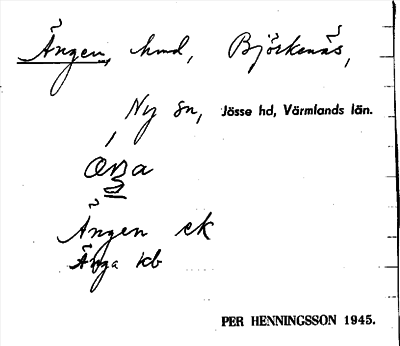 Ängen, hmd, Björkenäs,
Ny sn, Jösse hd, Värmlands län.
Ängen ek
Änga kb
PER HENNINGSSON 1945.